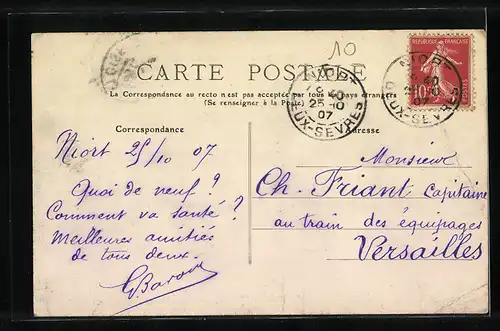 10
CARTE POSTALE
La Correspondance au recto n'est pas acceptée par tous les pays étrangers
(Se renseigner à la Poste)
RÉPUBLIQUE FRANÇAISE
10
NIORT
25-10
07
DEUX-SÈVRES
NIORT
07
DEUX-SÈVRES
Correspondance
Niort 25/10 07
Quoi de neuf ?
Comment va santé ?
Meilleures amitiés
de tous deux.
Adresse
Monsieur
Ch. Friant Capitaine
au train des équipages
Versailles